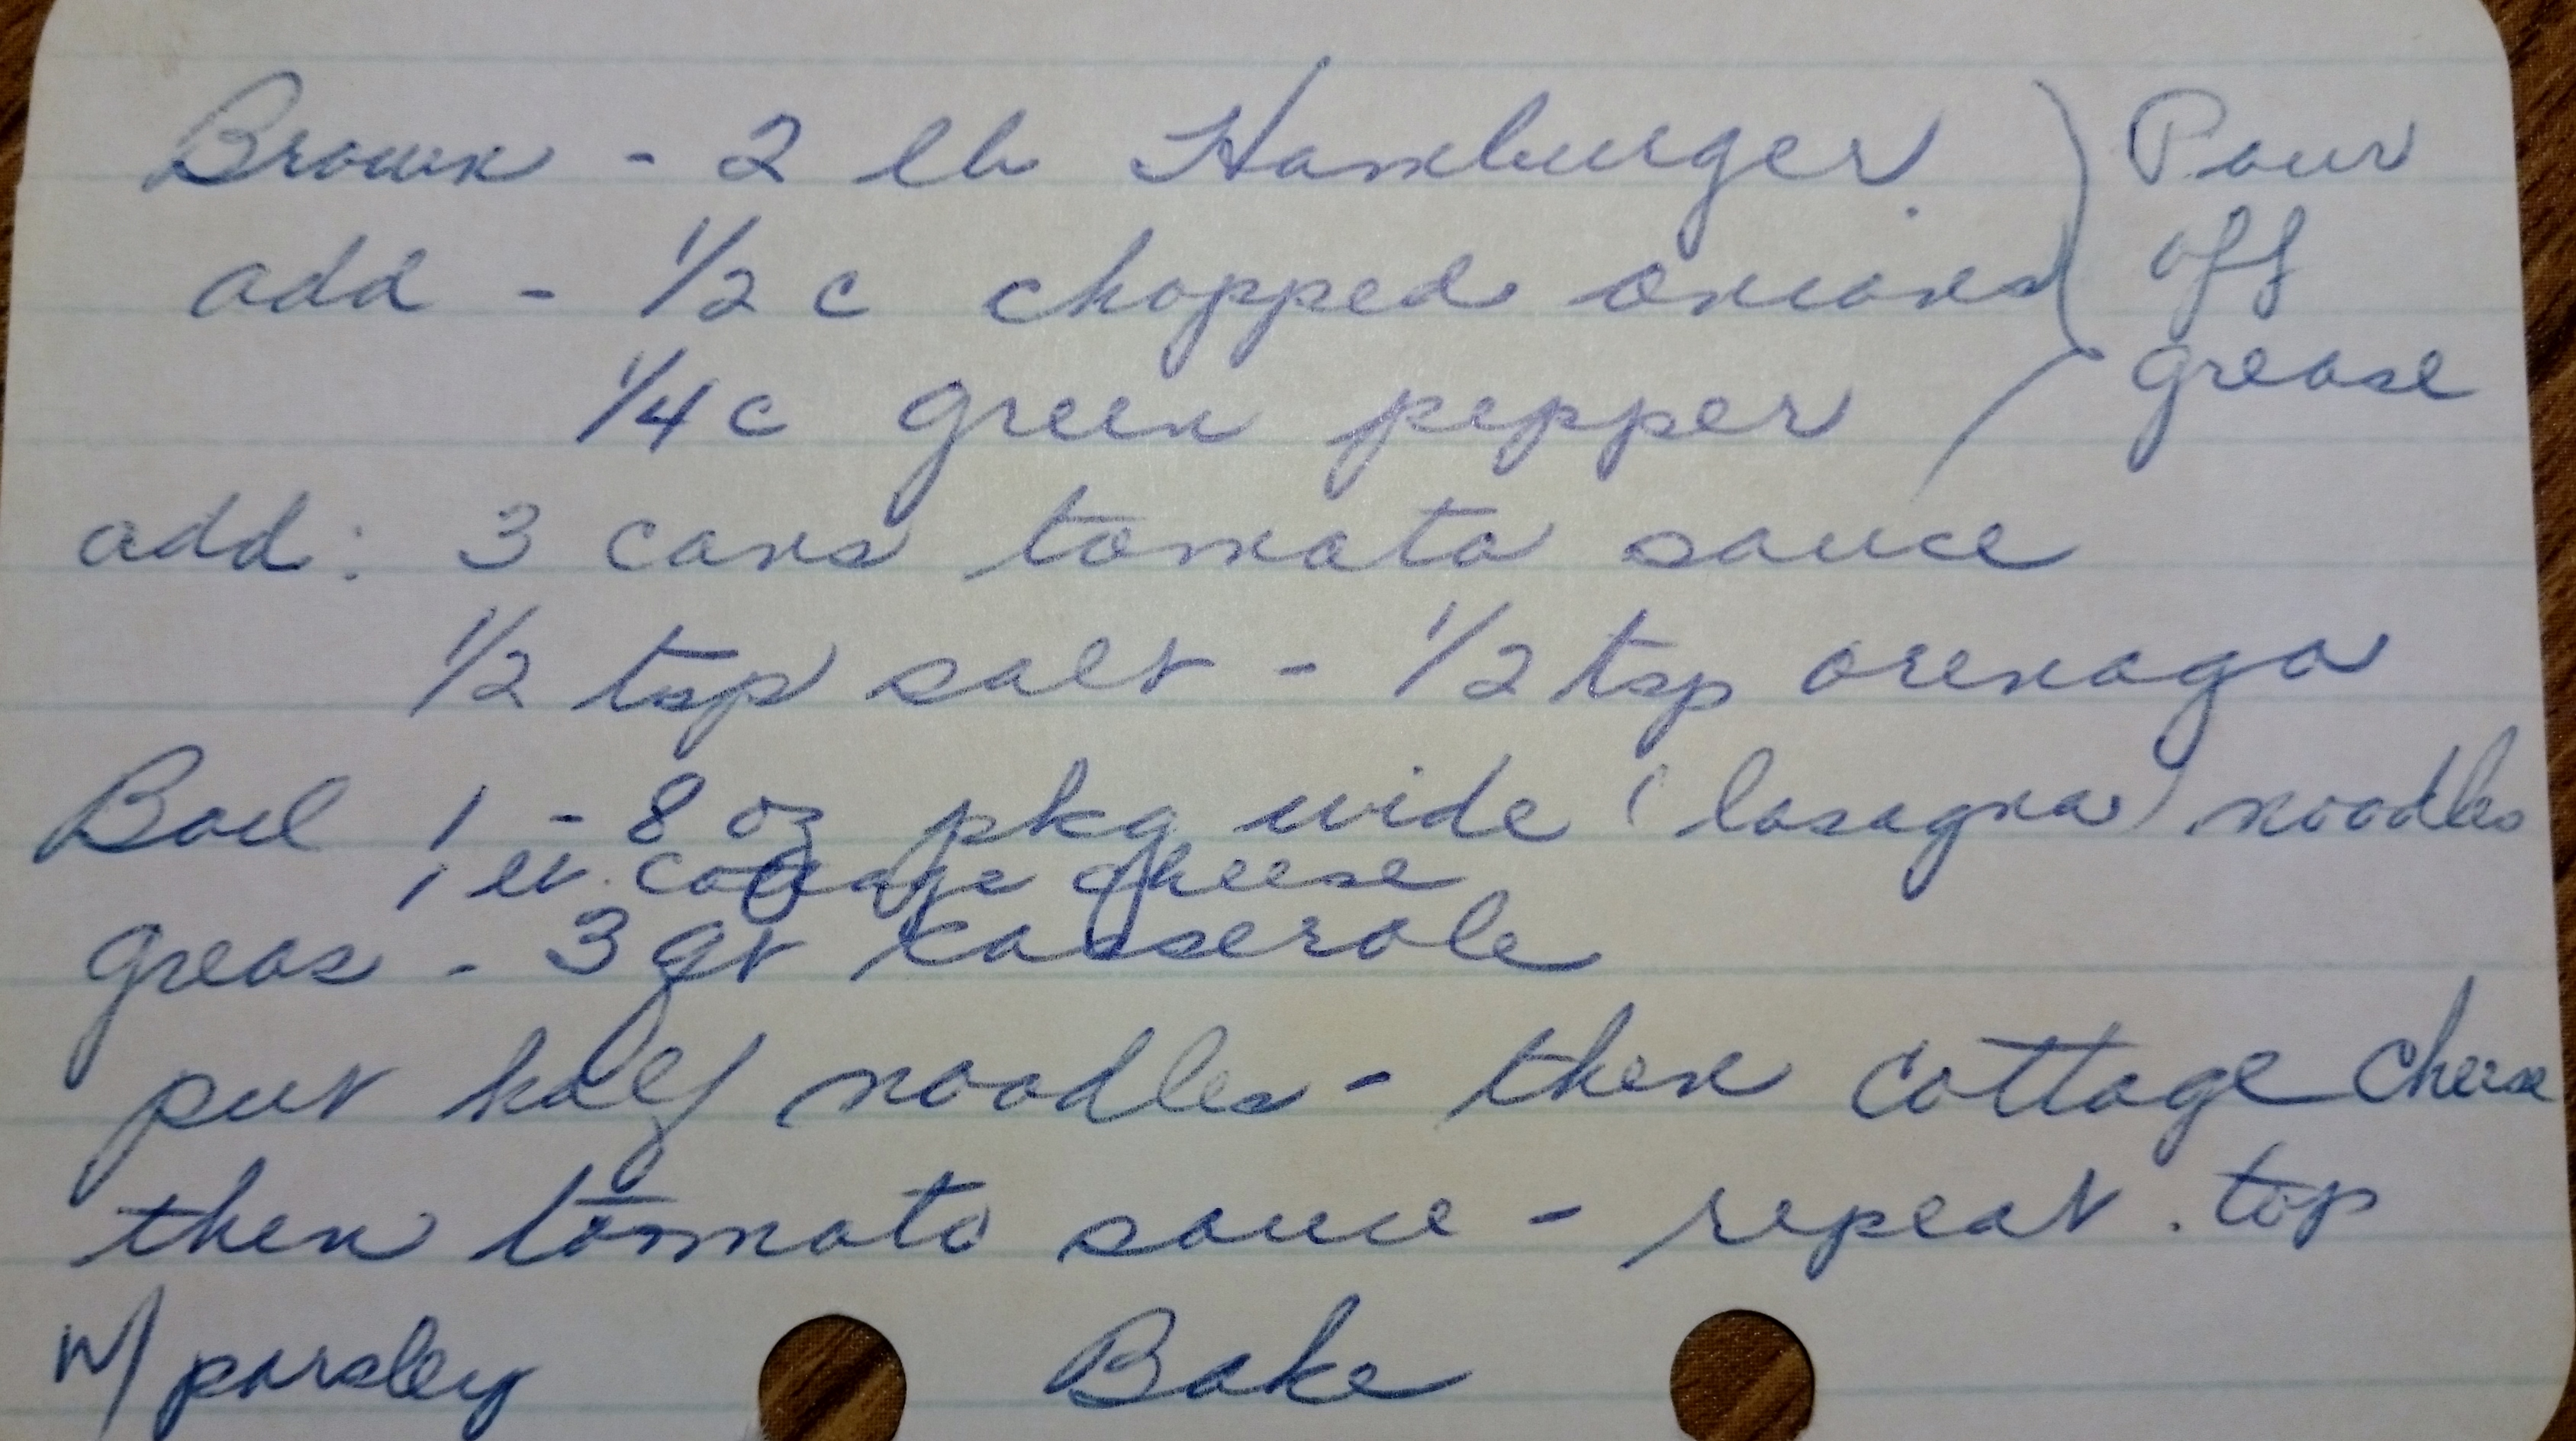 Brown - 2 lb Hamburger } Pour
add - 1/2 c chopped onions off
1/4 c green pepper grease
add: 3 cans tomato sauce
1/2 tsp salt - 1/2 tsp orenago
Boil 1 - 8 oz pkg wide (lasagna) noodles
1 cottage cheese
greas - 3 qt casserole
put half noodles - then cottage cheese
then tommato sauce - repeat. top
w/ parsley Bake